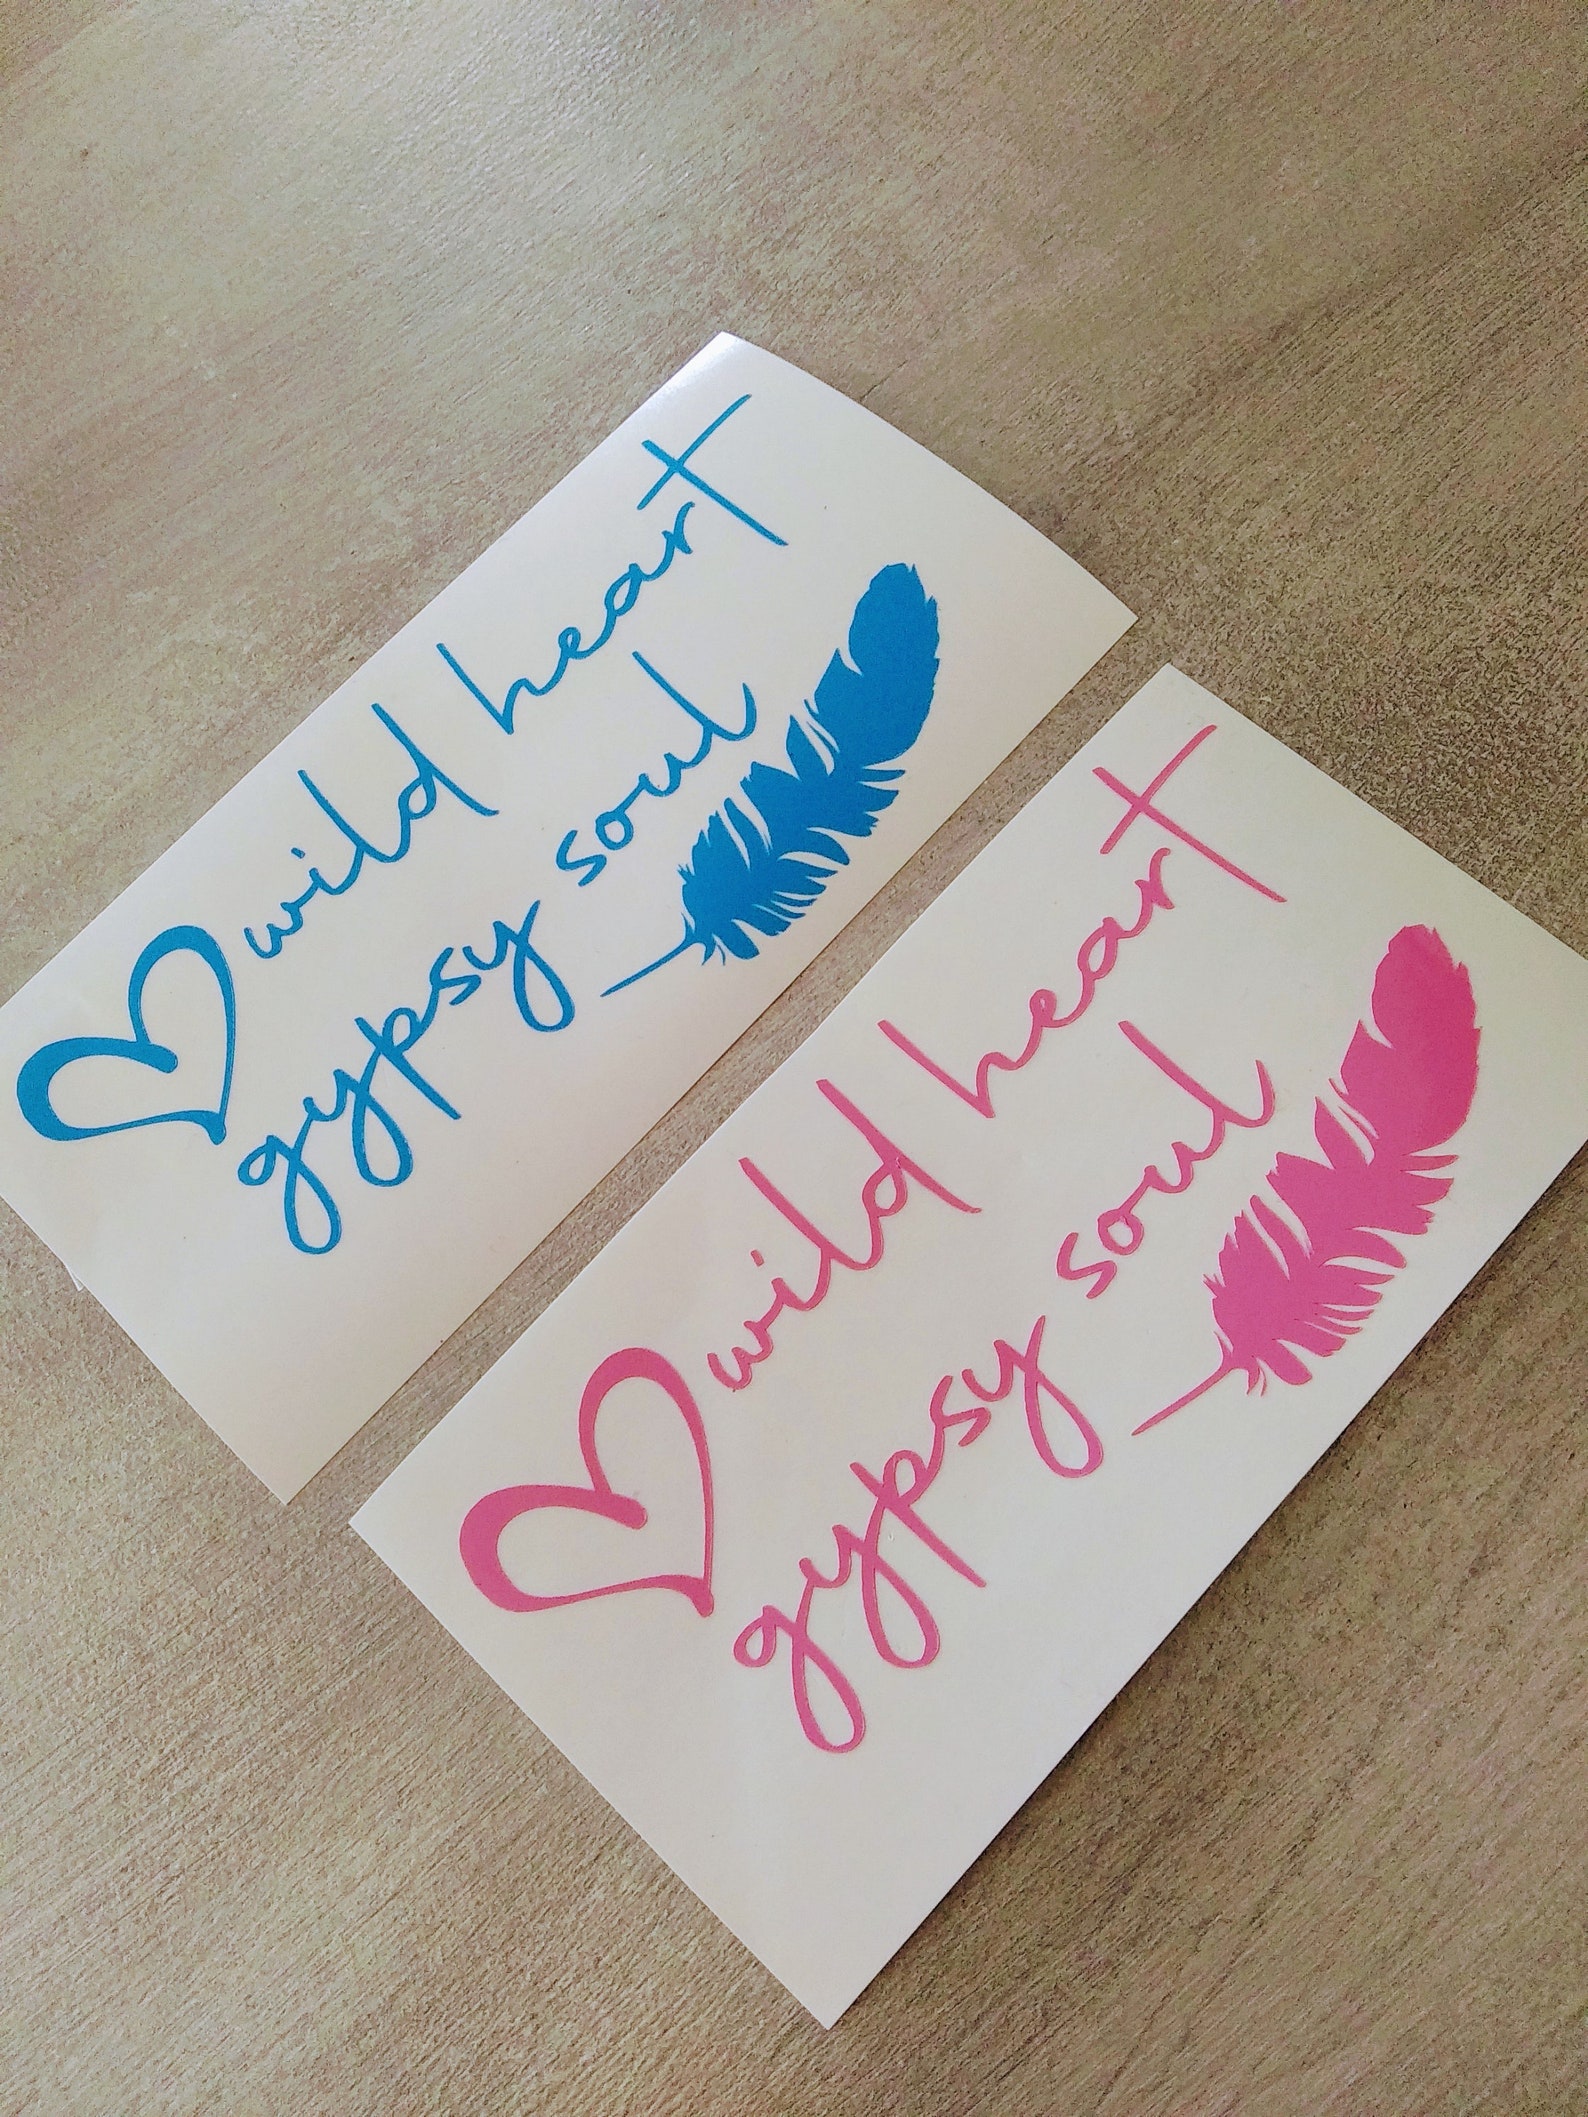 wild heart
gypsy soul
wild heart
gypsy soul